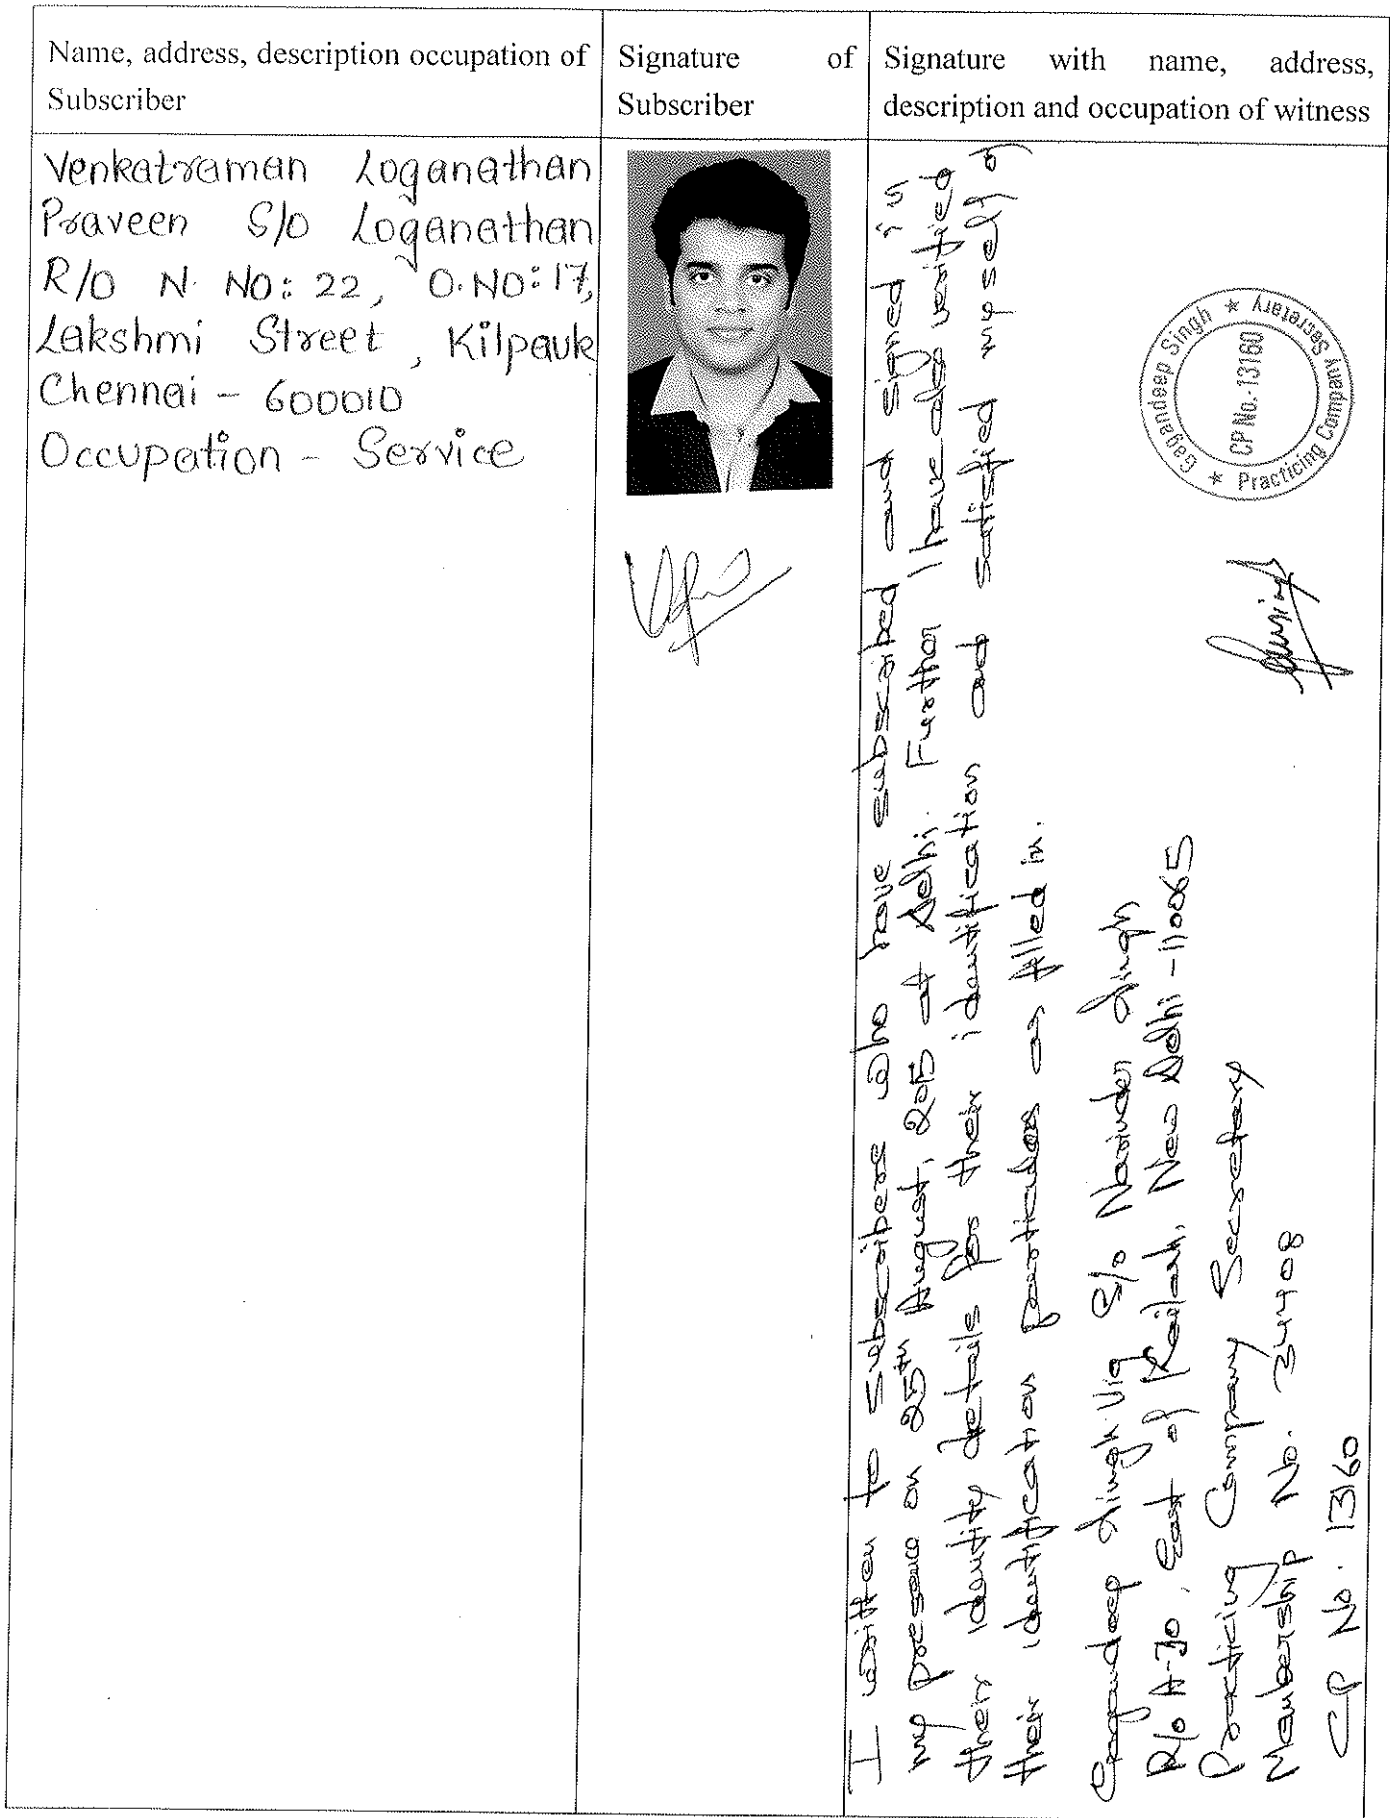 Name, address, description occupation of
Subscriber
Signature of
Subscriber
Signature with name, address,
description and occupation of witness
Venkatraman Loganathan
Praveen S/o Loganathan
R/O N. NO: 22, O.NO: 17,
Lakshmi Street, Kilpauk
Chennai - 600010
Occupation - Service
I witten to subscribers who have subscribed and signed in
my presence on 25th August, 2015 at Delhi. Further I have also verified
their identity details for their identification and satisfied myself of
their identification particulars as filled in.
Gagandeep Singh Vig S/o Narinder Singh
R/o A-70, East of Kailash, New Delhi - 110065
Practicing Company Secretary
Membership No. 34408
CP No. 13160
Gagandeep Singh * Practicing Company Secretary *
CP No.-13160